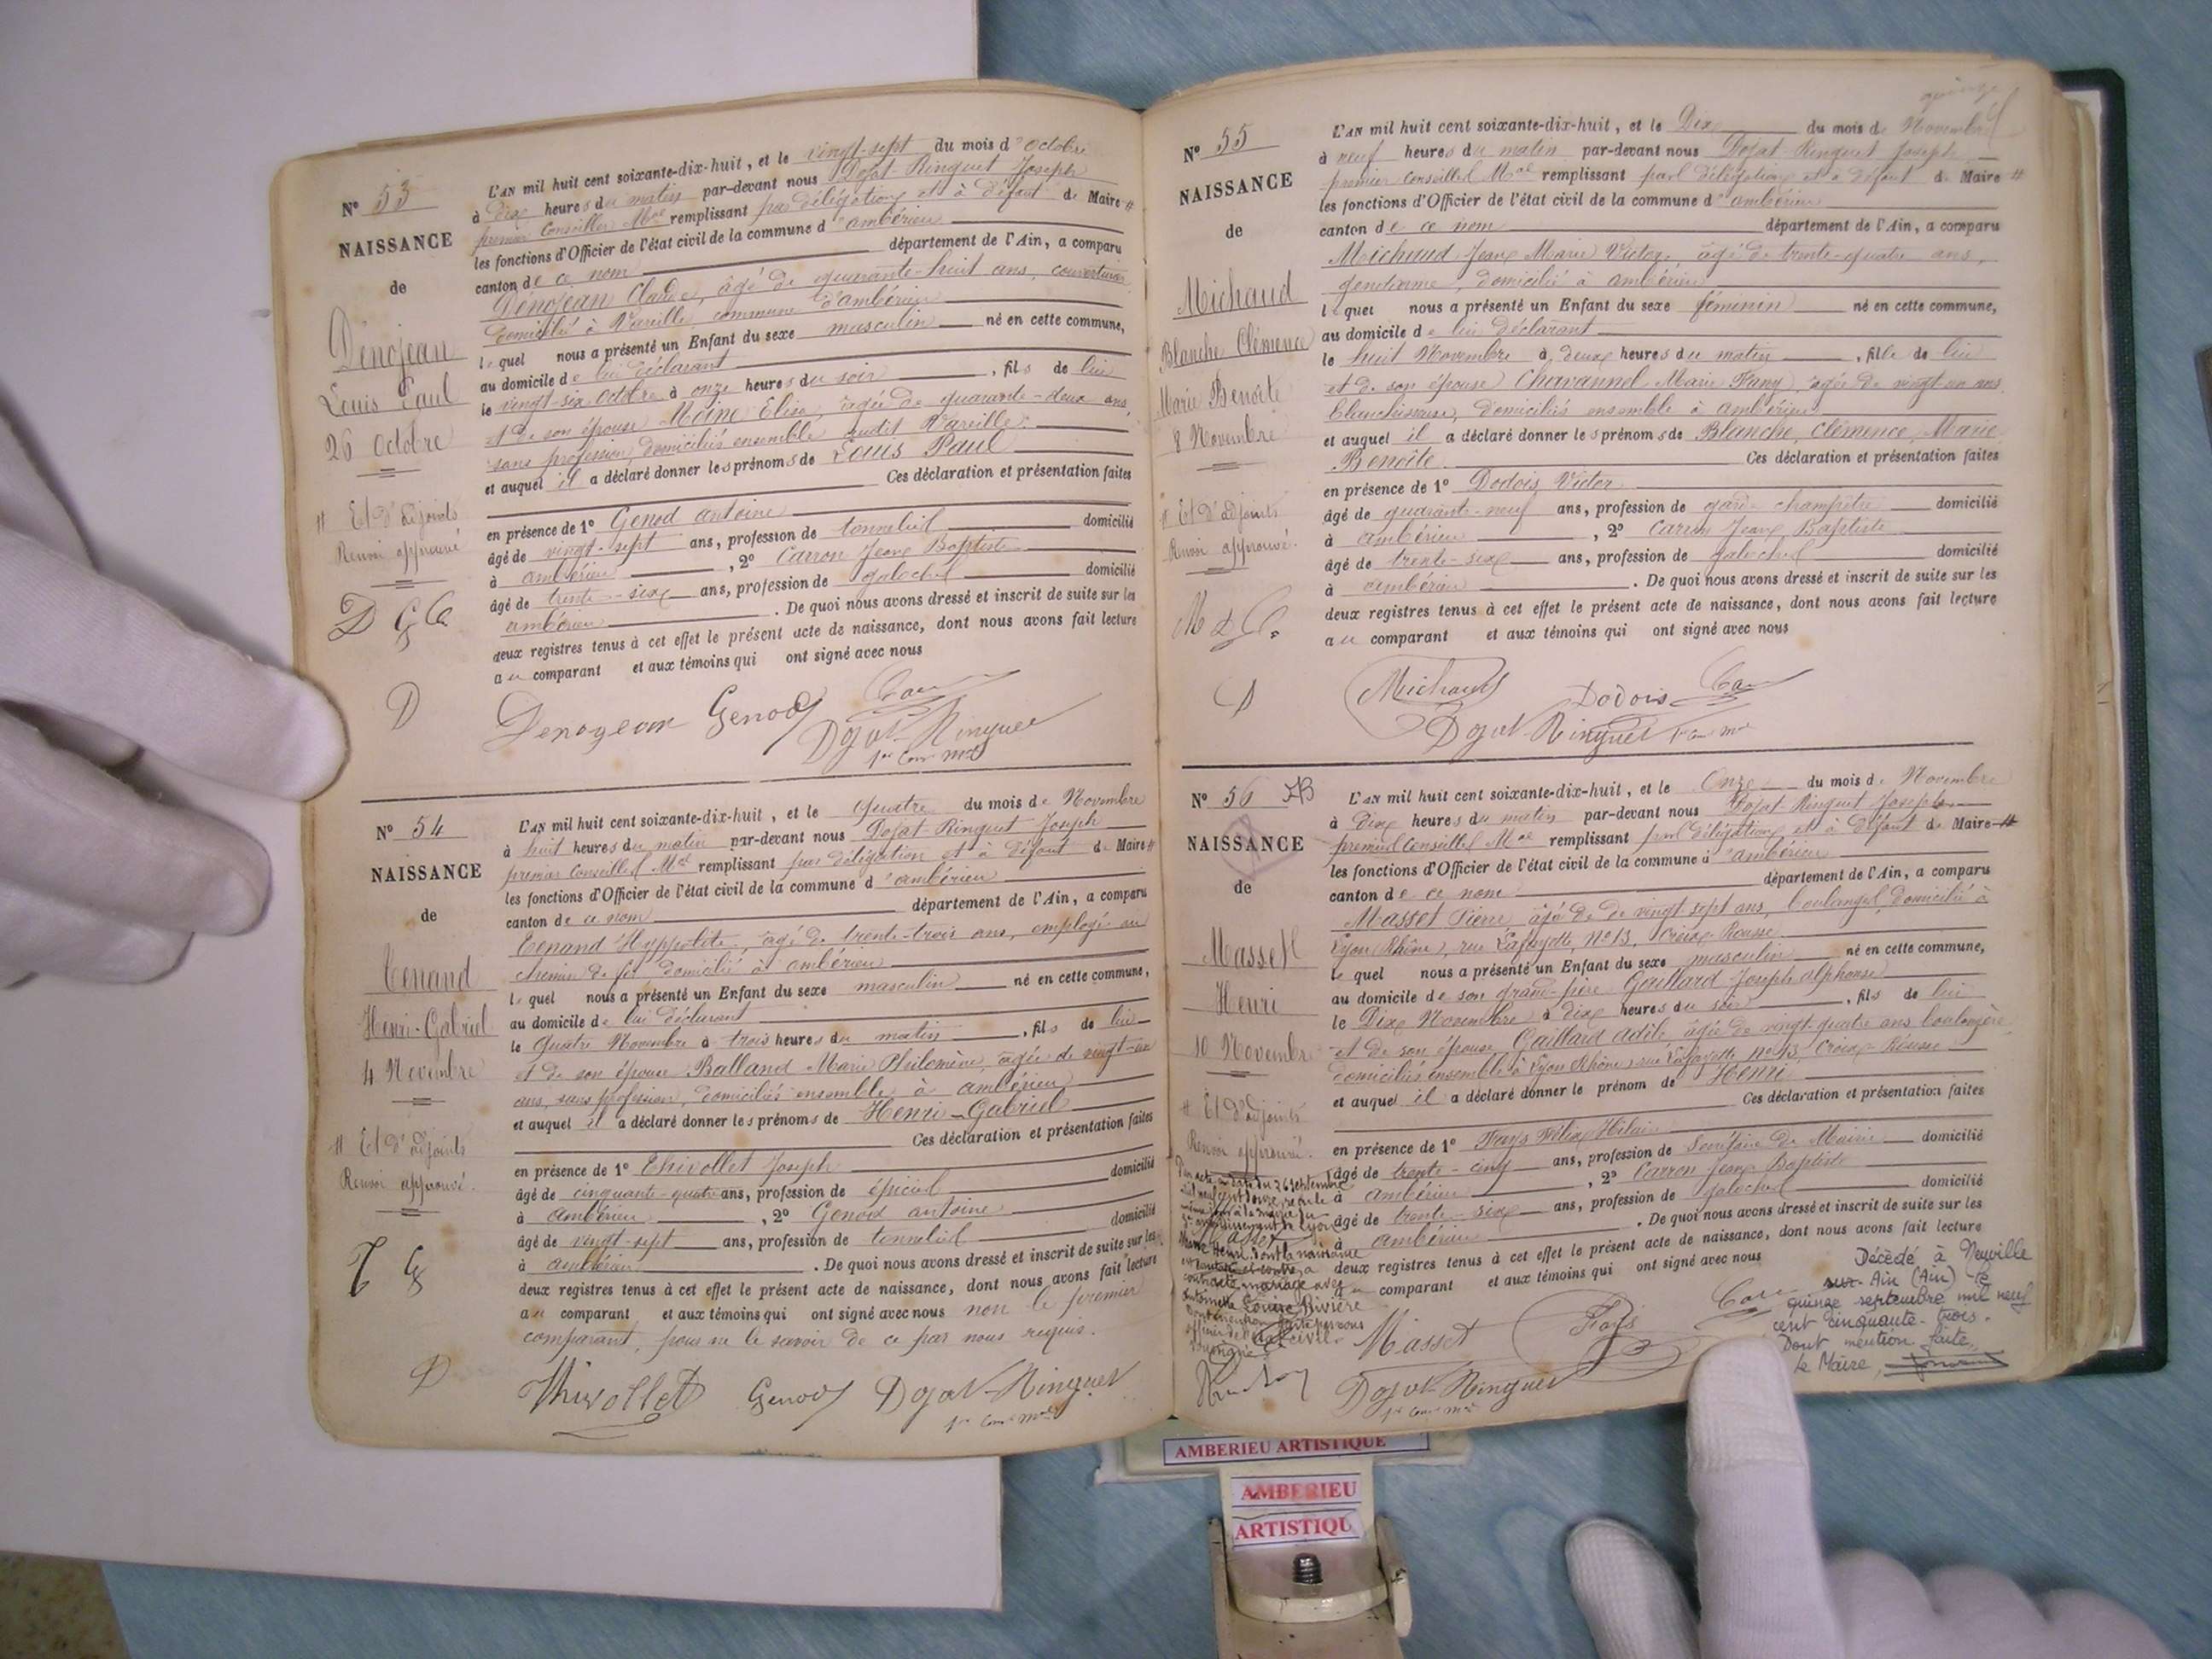 N° 53
NAISSANCE
de
Dénojean
Louis Paul
26 Octobre
# Et d'adjoints
Renvoi approuvé
D G C
D
L'AN mil huit cent soixante-dix-huit, et le vingt-sept du mois d'octobre
à dix heures du matin par-devant nous Dojat Ringuet Joseph
premier Conseiller Mal remplissant par délégation et à défaut de Maire #
les fonctions d'Officier de l'état civil de la commune d'ambérieu
canton de ce nom département de l'Ain, a comparu
Dénojean Claude, âgé de quarante-huit ans, couverturier
domicilié à Vareille commune d'ambérieu
lequel nous a présenté un Enfant du sexe masculin né en cette commune,
au domicile de lui déclarant
le vingt-six octobre à onze heures du soir, fils de lui
et de son épouse Moine Elise, âgée de quarante-deux ans,
sans profession, domiciliés ensemble audit Vareille
et auquel il a déclaré donner les prénoms de Louis Paul
Ces déclaration et présentation faites
en présence de 1° Genod antoine
âgé de vingt-sept ans, profession de tonnelier domicilié
à ambérieu, 2° Carron Jean Baptiste
âgé de trente-six ans, profession de galochier domicilié
ambérieu. De quoi nous avons dressé et inscrit de suite sur les
deux registres tenus à cet effet le présent acte de naissance, dont nous avons fait lecture
au comparant et aux témoins qui ont signé avec nous
Denojean Genod Carron
Dojat-Ringuet
1er Conr Mal
N° 54
NAISSANCE
de
Tenand
Henri-Gabriel
4 Novembre
# Et d'adjoints
Renvoi approuvé.
T G
D
L'AN mil huit cent soixante-dix-huit, et le quatre du mois de Novembre
à huit heures du matin par-devant nous Dojat Ringuet Joseph
premier Conseiller Mal remplissant par délégation et à défaut de Maire #
les fonctions d'Officier de l'état civil de la commune d'ambérieu
canton de ce nom département de l'Ain, a comparu
Tenand Hyppolite, âgé de trente-trois ans, employé au
chemin de fer domicilié à ambérieu
lequel nous a présenté un Enfant du sexe masculin né en cette commune,
au domicile de lui déclarant
le quatre Novembre à trois heures du matin, fils de lui
et de son épouse Balland Marie Philomène, âgée de vingt-un
ans, sans profession, domiciliés ensemble à ambérieu
et auquel il a déclaré donner les prénoms de Henri-Gabriel
Ces déclaration et présentation faites
en présence de 1° Thivollet Joseph
âgé de cinquante-quatre ans, profession de épicier domicilié
à ambérieu, 2° Genod antoine
âgé de vingt-sept ans, profession de tonnelier domicilié
à ambérieu. De quoi nous avons dressé et inscrit de suite sur les
deux registres tenus à cet effet le présent acte de naissance, dont nous avons fait lecture
au comparant et aux témoins qui ont signé avec nous non le premier
comparant, pour ne le savoir de ce par nous requis.
Thivollet Genod Dojat-Ringuet
1er Conr Mal
quinze
N° 55
NAISSANCE
de
Michaud
Blanche Clémence
Marie Benoîte
8 Novembre
# Et d'adjoints
Renvoi approuvé.
M d C.
D
L'AN mil huit cent soixante-dix-huit, et le Dix du mois de Novembre
à neuf heures du matin par-devant nous Dojat-Ringuet Joseph
premier Conseiller Mal remplissant par délégation et à défaut de Maire #
les fonctions d'Officier de l'état civil de la commune d'ambérieu
canton de ce nom département de l'Ain, a comparu
Michaud Jean Marie Victor, âgé de trente-quatre ans,
gendarme, domicilié à ambérieu
lequel nous a présenté un Enfant du sexe féminin né en cette commune,
au domicile de lui déclarant
le huit Novembre à deux heures du matin, fille de lui
et de son épouse Chavannel Marie Fany, âgée de vingt-un ans
blanchisseuse, domiciliés ensemble à ambérieu
et auquel il a déclaré donner les prénoms de Blanche, Clémence, Marie
Benoîte. Ces déclaration et présentation faites
en présence de 1° Dodois Victor
âgé de quarante-neuf ans, profession de garde champêtre domicilié
à ambérieu, 2° Carron Jean Baptiste
âgé de trente-six ans, profession de galochier domicilié
à ambérieu. De quoi nous avons dressé et inscrit de suite sur les
deux registres tenus à cet effet le présent acte de naissance, dont nous avons fait lecture
au comparant et aux témoins qui ont signé avec nous
Michaud Dodois Carron
Dojat Ringuet 1er Conr Mal
N° 56
NAISSANCE
de
Masset
Henri
10 Novembre
# Et d'adjoints
Renvoi approuvé.
L'AN mil huit cent soixante-dix-huit, et le Onze du mois de Novembre
à Dix heures du matin par-devant nous Dojat Ringuet Joseph
premier Conseiller Mal remplissant par délégation et à défaut de Maire #
les fonctions d'Officier de l'état civil de la commune d'ambérieu
canton de ce nom département de l'Ain, a comparu
Masset Pierre âgé de de vingt sept ans, boulanger, domicilié à
Lyon (Rhône), rue Lafayette, N° 13, Croix-Rousse
lequel nous a présenté un Enfant du sexe masculin né en cette commune,
au domicile de son grand-père Gaillard Joseph alphonse
le Dix Novembre à dix heures du soir, fils de lui
et de son épouse Gaillard adèle âgée de vingt-quatre ans boulangère
domiciliés ensemble à Lyon (Rhône) rue Lafayette N° 13, Croix-Rousse
et auquel il a déclaré donner le prénom de Henri
Ces déclaration et présentation faites
en présence de 1° Fays Félix Hilaire
âgé de trente-cinq ans, profession de Secrétaire de Mairie domicilié
à ambérieu, 2° Carron Jean Baptiste
âgé de trente-six ans, profession de galochier domicilié
à ambérieu. De quoi nous avons dressé et inscrit de suite sur les
deux registres tenus à cet effet le présent acte de naissance, dont nous avons fait lecture
au comparant et aux témoins qui ont signé avec nous
Par acte en date du 26 septembre
mil neuf cent douze, reçu le
à la mairie du
arrondissement de Lyon
Masset
Henri dont la naissance
est ci-contre, a
contracté mariage avec
Antoinette Louise Rivière
Dont mention faite par nous
officier de l'état civil
Masset Fays Carron
Dojat-Ringuet
1er Conr Mal
Décédé à Neuville
sur-Ain (Ain) le
quinze septembre mil neuf
cent cinquante-trois.
Dont mention faite,
Le Maire,
AMBERIEU ARTISTIQUE
AMBERIEU
ARTISTIQU